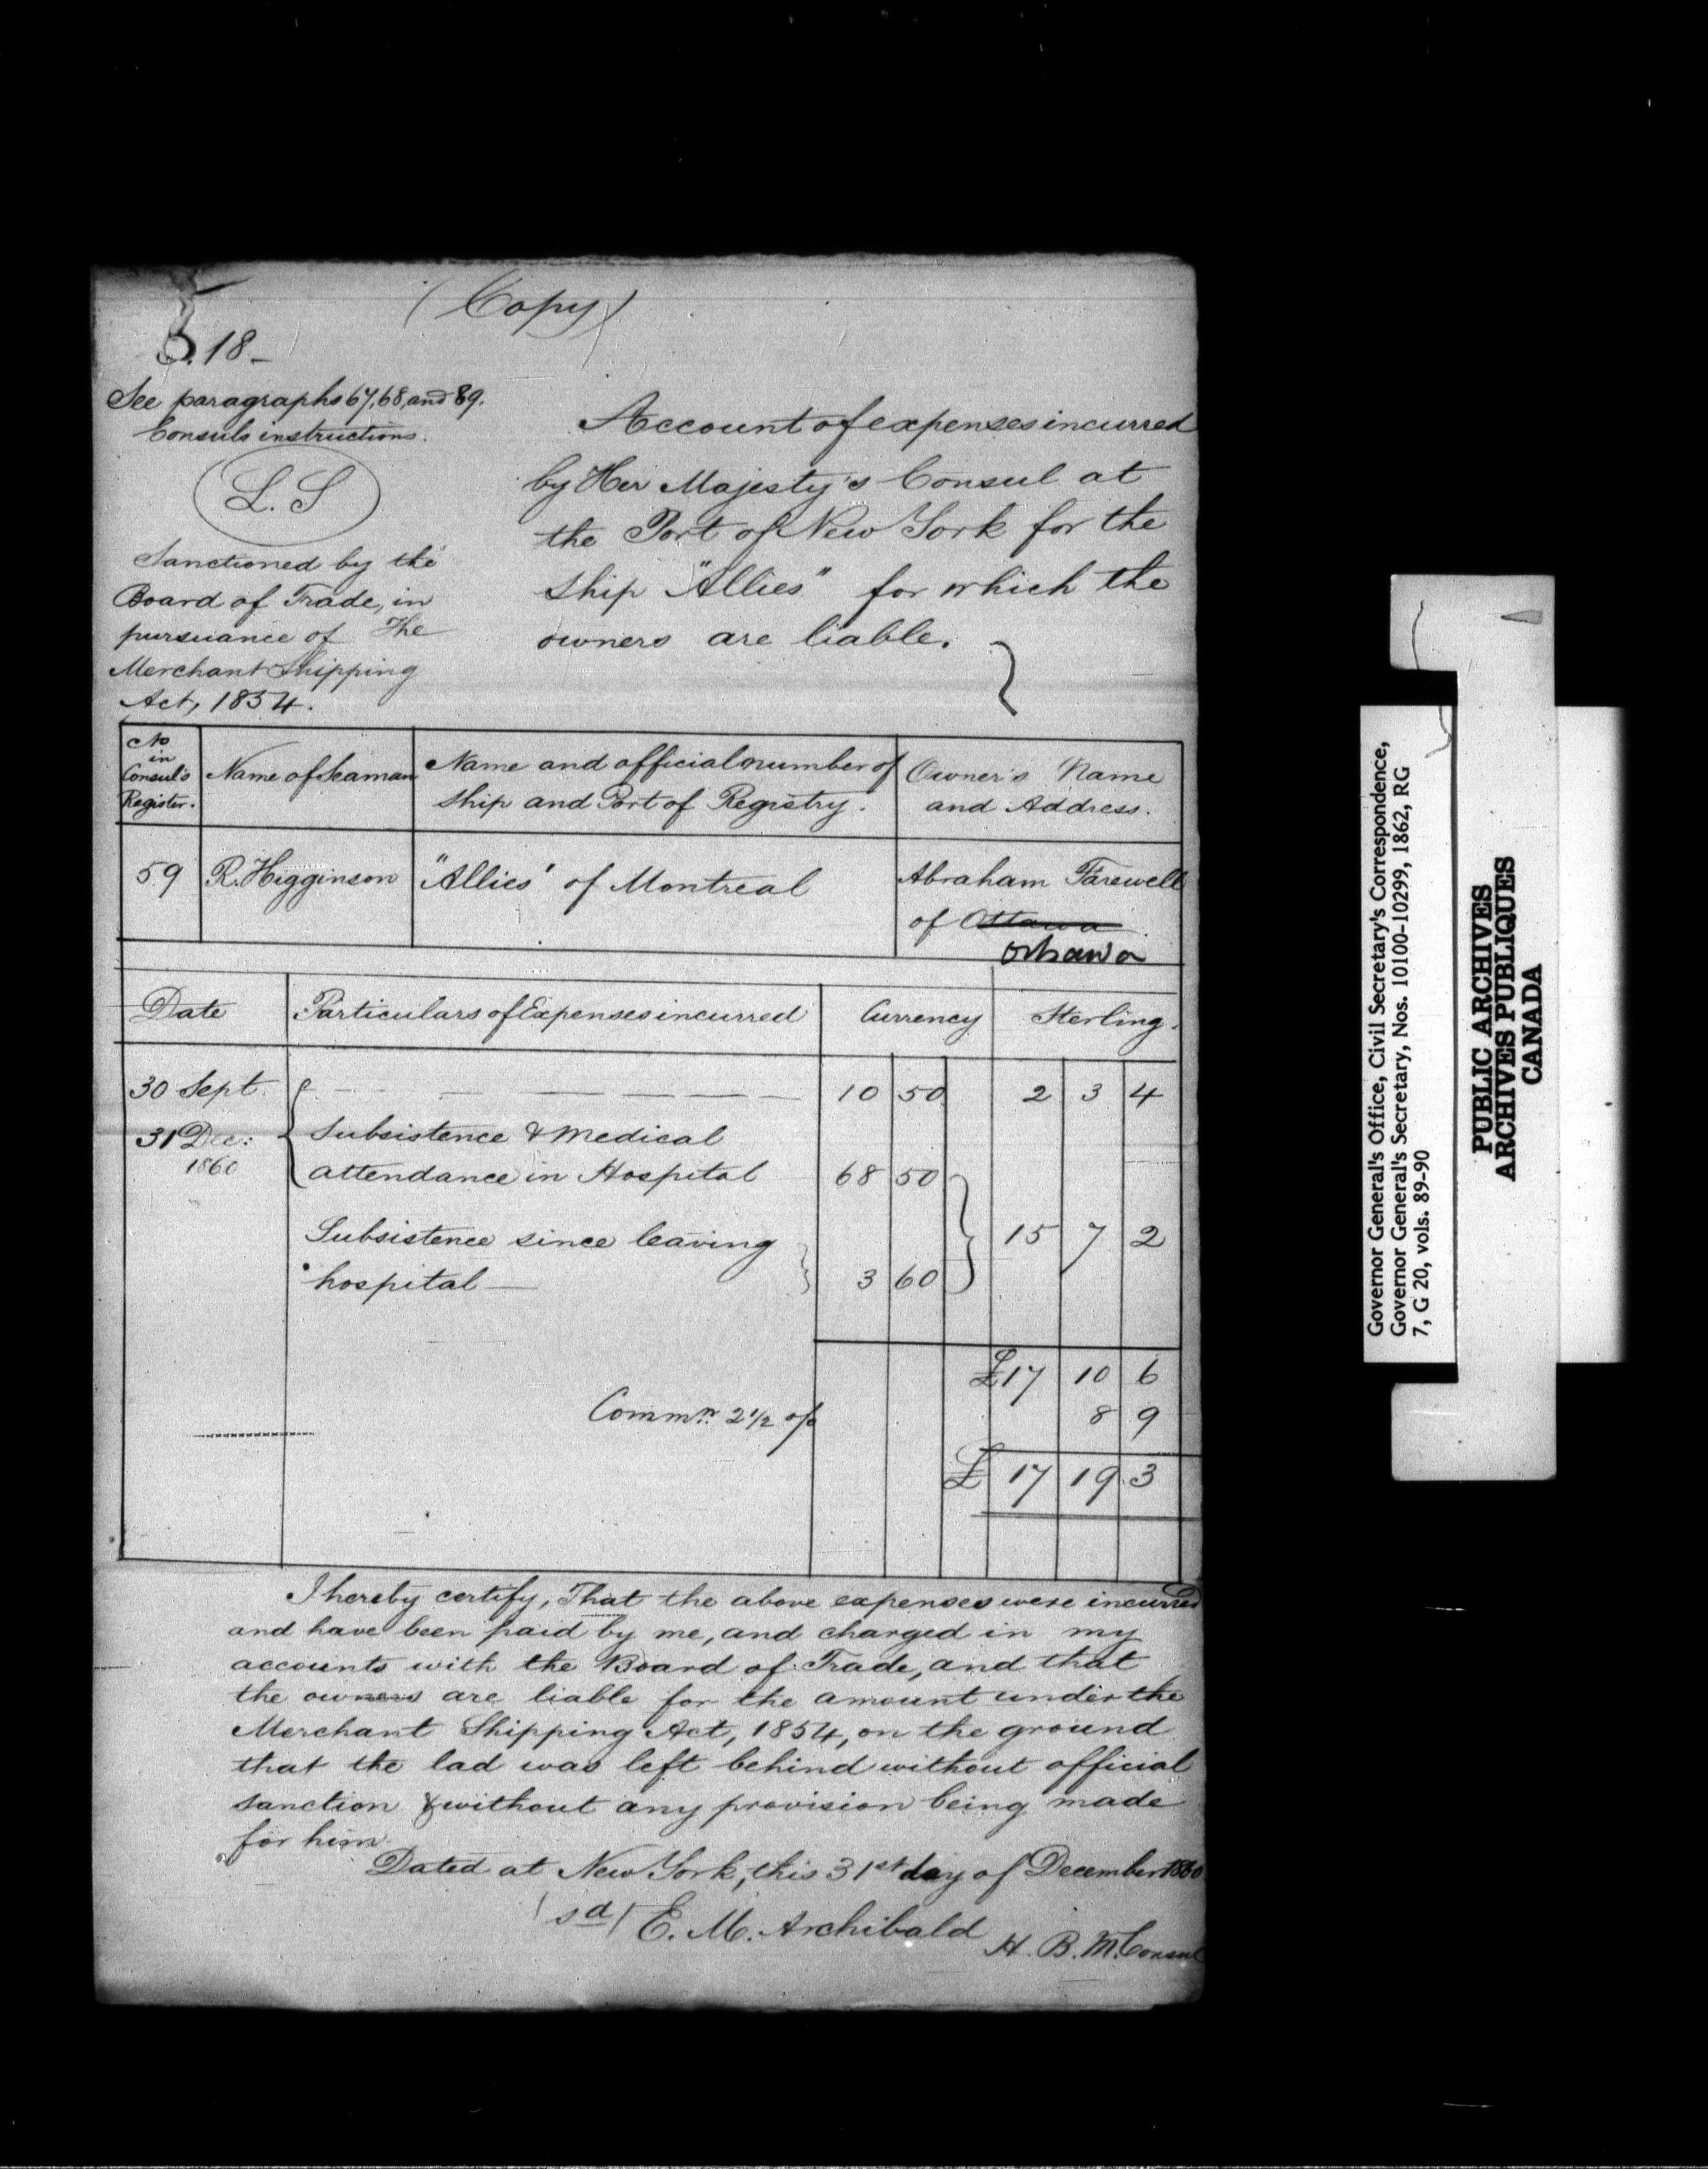 (Copy)
S. 18-
See paragraphs 67, 68, and 89.
Consuls instructions.
L.S
Sanctioned by the
Board of Trade, in
pursuance of The
Merchant Shipping
Act, 1854.
Account of expenses incurred
by Her Majesty's Consul at
the Port of New York for the
Ship "Allies" for which the
owners are liable.
No in Consul's Register. | Name of Seaman | Name and official number of Ship and Port of Registry. | Owner's Name and Address.
59 | R. Higginson | "Allies" of Montreal | Abraham Farewell
of Ottawa
Oshawa
Date | Particulars of Expenses incurred | Currency | Sterling.
30 Sept. | 10 | 50 | 2 | 3 | 4
31 Dec: Subsistence & Medical
1860 attendance in Hospital | 68 | 50
Subsistence since leaving | 15 | 7 | 2
hospital — | 3 | 60
£17 | 10 | 6
Commn. 2 1/2 o/o | 8 | 9
£ 17 | 19 | 3
I hereby certify, That the above expenses were incurred
and have been paid by me, and charged in my
accounts with the Board of Trade, and that
the owners are liable for the amount under the
Merchant Shipping Act, 1854, on the ground
that the lad was left behind without official
sanction & without any provision being made
for him.
Dated at New York, this 31st day of December 1860.
(sd) E. M. Archibald
H. B. M. Consul
Governor General's Office, Civil Secretary's Correspondence,
Governor General's Secretary, Nos. 10100-10299, 1862, RG
7, G 20, vols. 89-90
PUBLIC ARCHIVES
ARCHIVES PUBLIQUES
CANADA